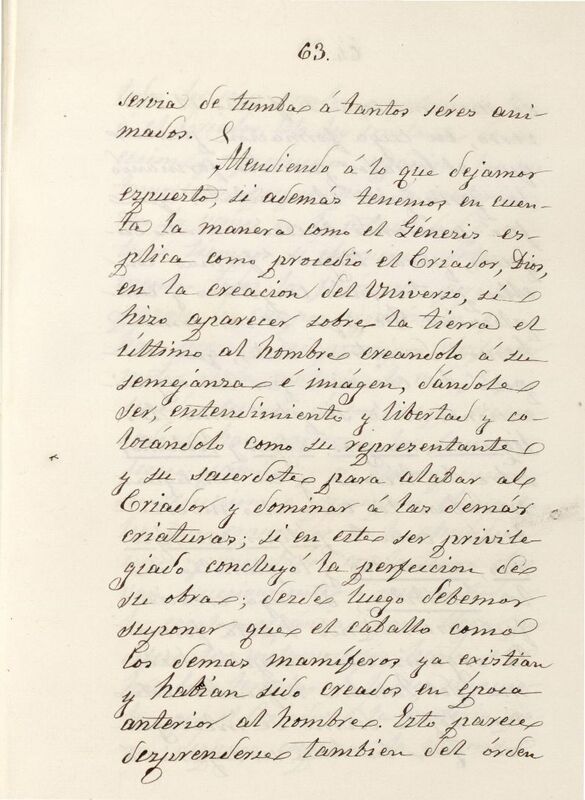 63.
servia de tumba á tantos séres ani-
mados.
Atendiendo á lo que dejamos
espuesto, si además tenemos en cuen-
ta la manera como el Génesis es-
plica como procedió el Criador, Dios,
en la creacion del Universo, si
hizo aparecer sobre la tierra el
último al hombre creandolo á su
semejanza é imágen, dándole
ser, entendimiento y libertad y co-
locándolo como su representante
y su sacerdote para alabar al
Criador y dominar á las demás
criaturas; si en este ser privile-
giado concluyó la perfeicion de
su obra; desde luego debemos
suponer que el caballo como
los demas mamíferos ya existian
y habian sido creados en época
anterior al hombre. Esto parece
desprenderse tambien del órden